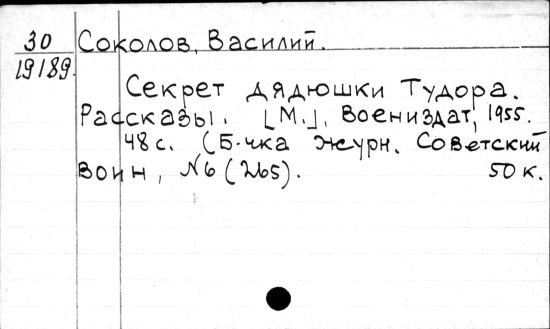 30 Соколов, Василий.
19189.
Секрет дядюшки Тудора.
Рассказы. [М.], Воениздат, 1955.
48 с. (Б-чка журн. Советский
воин, №6 (265). 50 к.